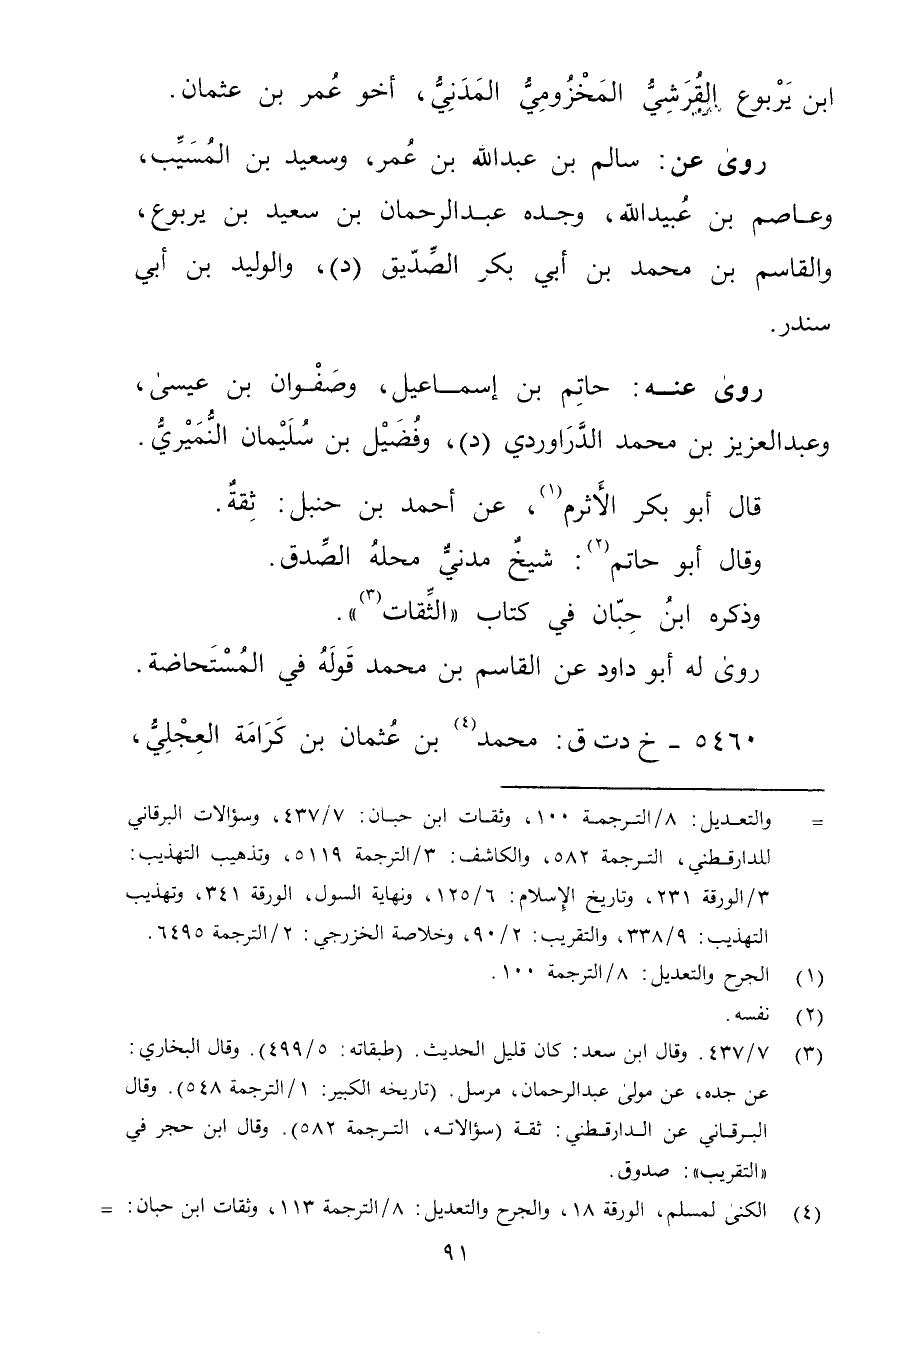 ابن يَرْبوع القُرَشِيُّ المَخْزُوميُّ المَدَنِيُّ، أخو عُمر بن عثمان.
روىٰ عن: سالم بن عبدالله بن عُمر، وسعيد بن المُسَيِّب،
وعاصم بن عُبيدالله، وجده عبدالرحمان بن سعيد بن يربوع،
والقاسم بن محمد بن أبي بكر الصِّدّيق (د)، والوليد بن أبي
سندر.
روىٰ عنه: حاتِم بن إسماعيل، وصَفْوان بن عيسىٰ،
وعبدالعزيز بن محمد الدَّرَاوردي (د)، وفُضَيْل بن سُلَيْمان النُّمَيْريُّ.
قال أبو بكر الأَثرم(١)، عن أحمد بن حنبل: ثِقةٌ.
وقال أبو حاتم(٢): شيخٌ مدنيٌّ محلهُ الصِّدق.
وذكره ابنُ حِبّان في كتاب «الثِّقات(٣)».
روىٰ له أبو داود عن القاسم بن محمد قَولَهُ في المُسْتَحاضة.
٥٤٦٠ - خ د ت ق: محمد(٤) بن عُثمان بن كَرَامَة العِجْليُّ،
= والتعديل: ٨/الترجمة ١٠٠، وثقات ابن حبان: ٤٣٧/٧، وسؤالات البرقاني
للدارقطني، الترجمة ٥٨٢، والكاشف: ٣/الترجمة ٥١١٩، وتذهيب التهذيب:
٣/الورقة ٢٣١، وتاريخ الإسلام: ١٢٥/٦، ونهاية السول، الورقة ٣٤١، وتهذيب
التهذيب: ٣٣٨/٩، والتقريب: ٩٠/٢، وخلاصة الخزرجي: ٢/الترجمة ٦٤٩٥.
(١) الجرح والتعديل: ٨/الترجمة ١٠٠.
(٢) نفسه.
(٣) ٤٣٧/٧. وقال ابن سعد: كان قليل الحديث. (طبقاته: ٤٩٩/٥). وقال البخاري:
عن جده، عن مولىٰ عبدالرحمان، مرسل. (تاريخه الكبير: ١/الترجمة ٥٤٨). وقال
البرقاني عن الدارقطني: ثقة (سؤالاته، الترجمة ٥٨٢). وقال ابن حجر في
«التقريب»: صدوق.
(٤) الكنىٰ لمسلم، الورقة ١٨، والجرح والتعديل: ٨/الترجمة ١١٣، وثقات ابن حبان: =
٩١